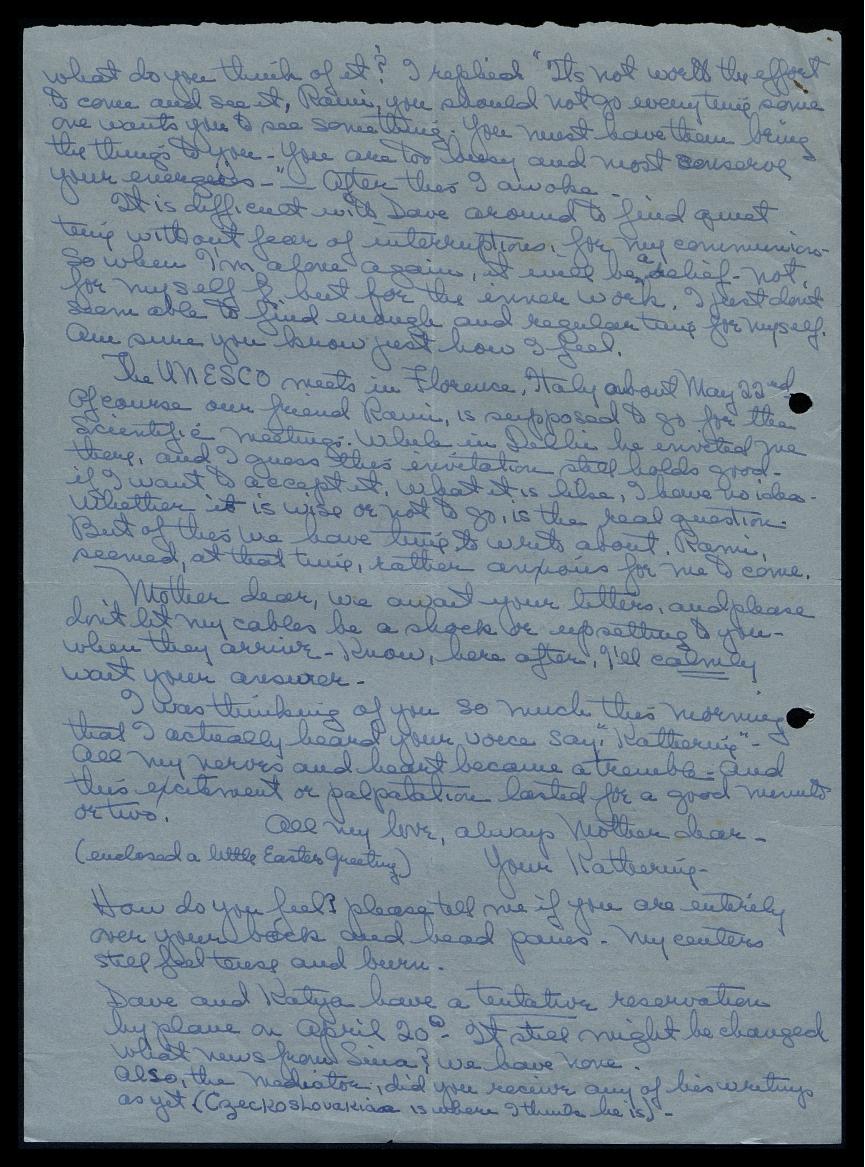 what do you think of it? I replied "Its not worth the effort
to come and see it, Rami, you should not go everytime some
one wants you to see something. You must have them bring
the things to you - You are too busy and must conserve
your energies -" — After this I awoke -
It is difficult with Dave around to find quiet
time without fear of interruptions, for my communion-
So when I'm alone again, it will be a relief - not,
for myself but for the inner work. I just don't
seem able to find enough and regular time for myself.
Am sure you know just how I feel.
The UNESCO meets in Florence, Italy about May 22nd
Of course our friend Rami, is supposed to go for the
scientific meetings. While in Delhi he invited me
there, and I guess this invitation still holds good -
if I want to accept it. What it is like, I have no idea -
Whether it is wise or not to go, is the real question.
But of this we have time to write about. Rami,
seemed, at that time, rather anxious for me to come.
Mother dear, we await your letters, and please
don't let my cables be a shock or upsetting to you -
when they arrive - Know, here after, I'll calmly
wait your answer -
I was thinking of you so much this morning
that I actually heard your voice say, "Katherine" -
All my nerves and heart became atremble - And
this excitement or palpatation lasted for a good minute
or two.
All my love, always Mother dear -
(enclosed a little Easter Greeting)
Your Katherine -
How do you feel? please tell me if you are entirely
over your back and head pains - My centers
still feel tense and burn.
Dave and Katya have a tentative reservation
by plane on April 20th - It still might be changed
What news from Sina? we have none.
Also, the Mediator, did you receive any of his writings
as yet (Czeckoslovakian is where I think he is) -